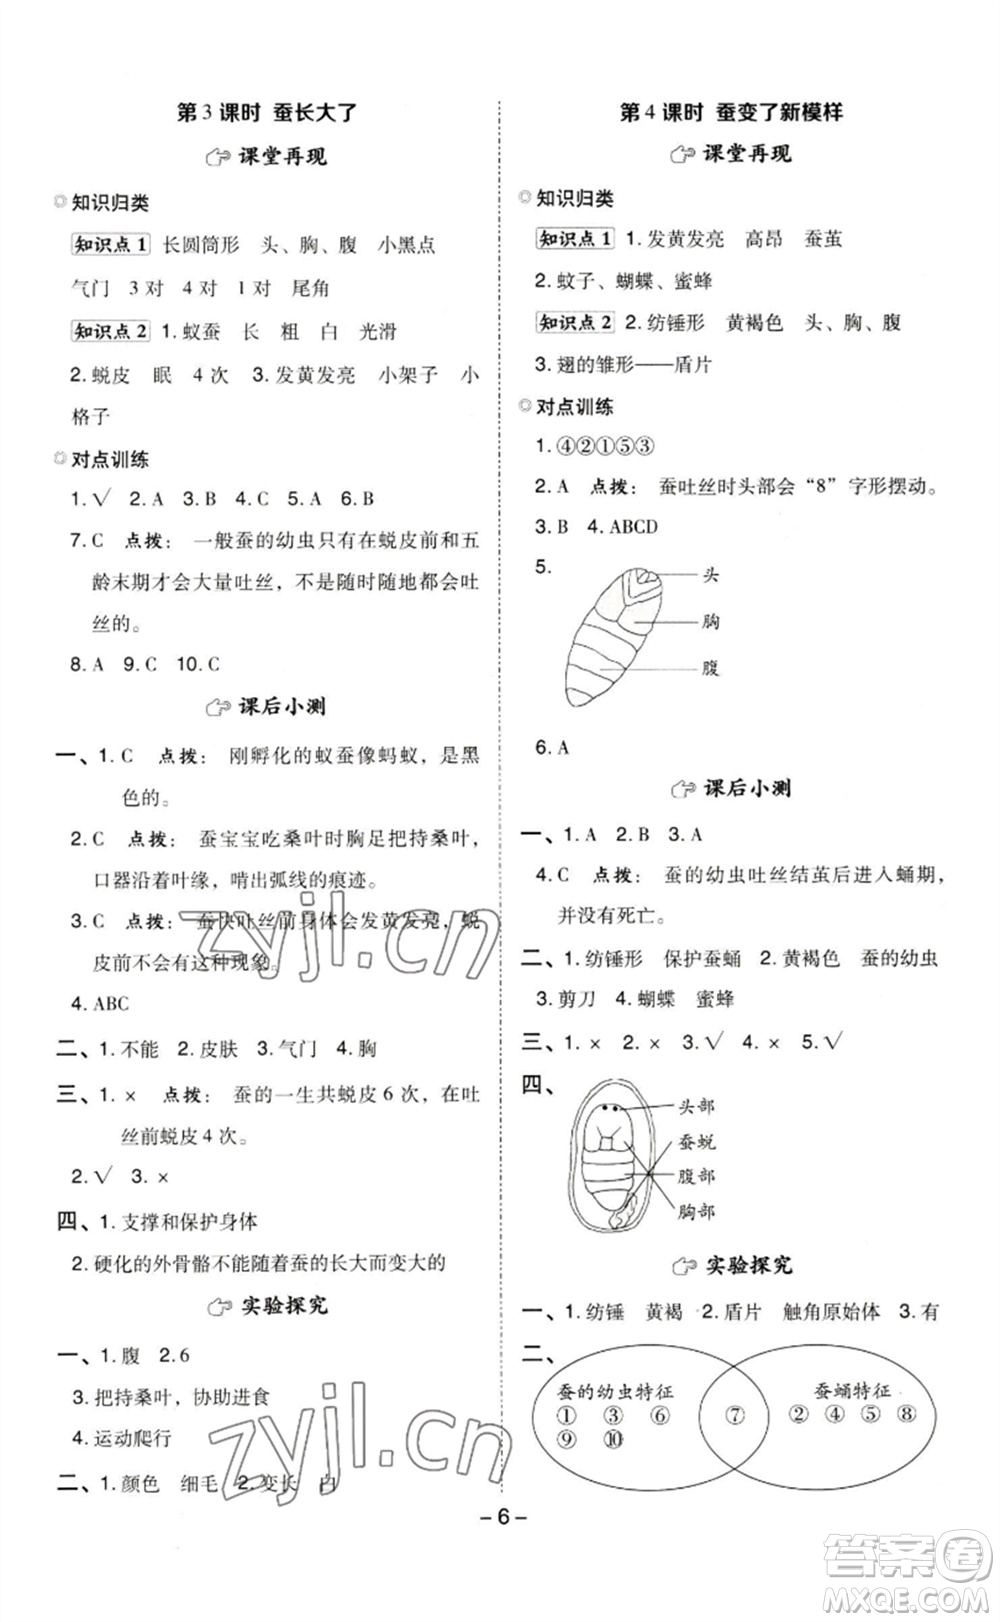 第 3 课时 蚕长大了
课堂再现
知识归类
知识点 1 长圆筒形 头、胸、腹 小黑点
气门 3 对 4 对 1 对 尾角
知识点 2 1. 蚁蚕 长 粗 白 光滑
2. 蜕皮 眠 4 次 3. 发黄发亮 小架子 小
格子
对点训练
1. √ 2. A 3. B 4. C 5. A 6. B
7. C 点拨：一般蚕的幼虫只有在蜕皮前和五
龄末期才会大量吐丝，不是随时随地都会吐
丝的。
8. A 9. C 10. C
课后小测
一、1. C 点拨：刚孵化的蚁蚕像蚂蚁，是黑
色的。
2. C 点拨：蚕宝宝吃桑叶时胸足把持桑叶，
口器沿着叶缘，啃出弧线的痕迹。
3. C 点拨：蚕快吐丝前身体会发黄发亮，蜕
皮前不会有这种现象。
4. ABC
二、1. 不能 2. 皮肤 3. 气门 4. 胸
三、1. × 点拨：蚕的一生共蜕皮 6 次，在吐
丝前蜕皮 4 次。
2. √ 3. ×
四、1. 支撑和保护身体
2. 硬化的外骨骼不能随着蚕的长大而变大的
实验探究
一、1. 腹 2. 6
3. 把持桑叶，协助进食
4. 运动爬行
二、1. 颜色 细毛 2. 变长 白
第 4 课时 蚕变了新模样
课堂再现
知识归类
知识点 1 1. 发黄发亮 高昂 蚕茧
2. 蚊子、蝴蝶、蜜蜂
知识点 2 2. 纺锤形 黄褐色 头、胸、腹
3. 翅的雏形——盾片
对点训练
1. ④②①⑤③
2. A 点拨：蚕吐丝时头部会“8”字形摆动。
3. B 4. ABCD
5.
头
胸
腹
6. A
课后小测
一、1. A 2. B 3. A
4. C 点拨：蚕的幼虫吐丝结茧后进入蛹期，
并没有死亡。
二、1. 纺锤形 保护蚕蛹 2. 黄褐色 蚕的幼虫
3. 剪刀 4. 蝴蝶 蜜蜂
三、1. × 2. × 3. √ 4. × 5. √
四、
头部
蚕蜕
腹部
胸部
实验探究
一、1. 纺锤 黄褐 2. 盾片 触角原始体 3. 有
二、
蚕的幼虫特征 蚕蛹特征
① ③ ⑥ ⑦ ② ④ ⑤ ⑧
⑨ ⑩
– 6 –
zyjl.cn
zyjl.cn
答案圈
MXQE.COM